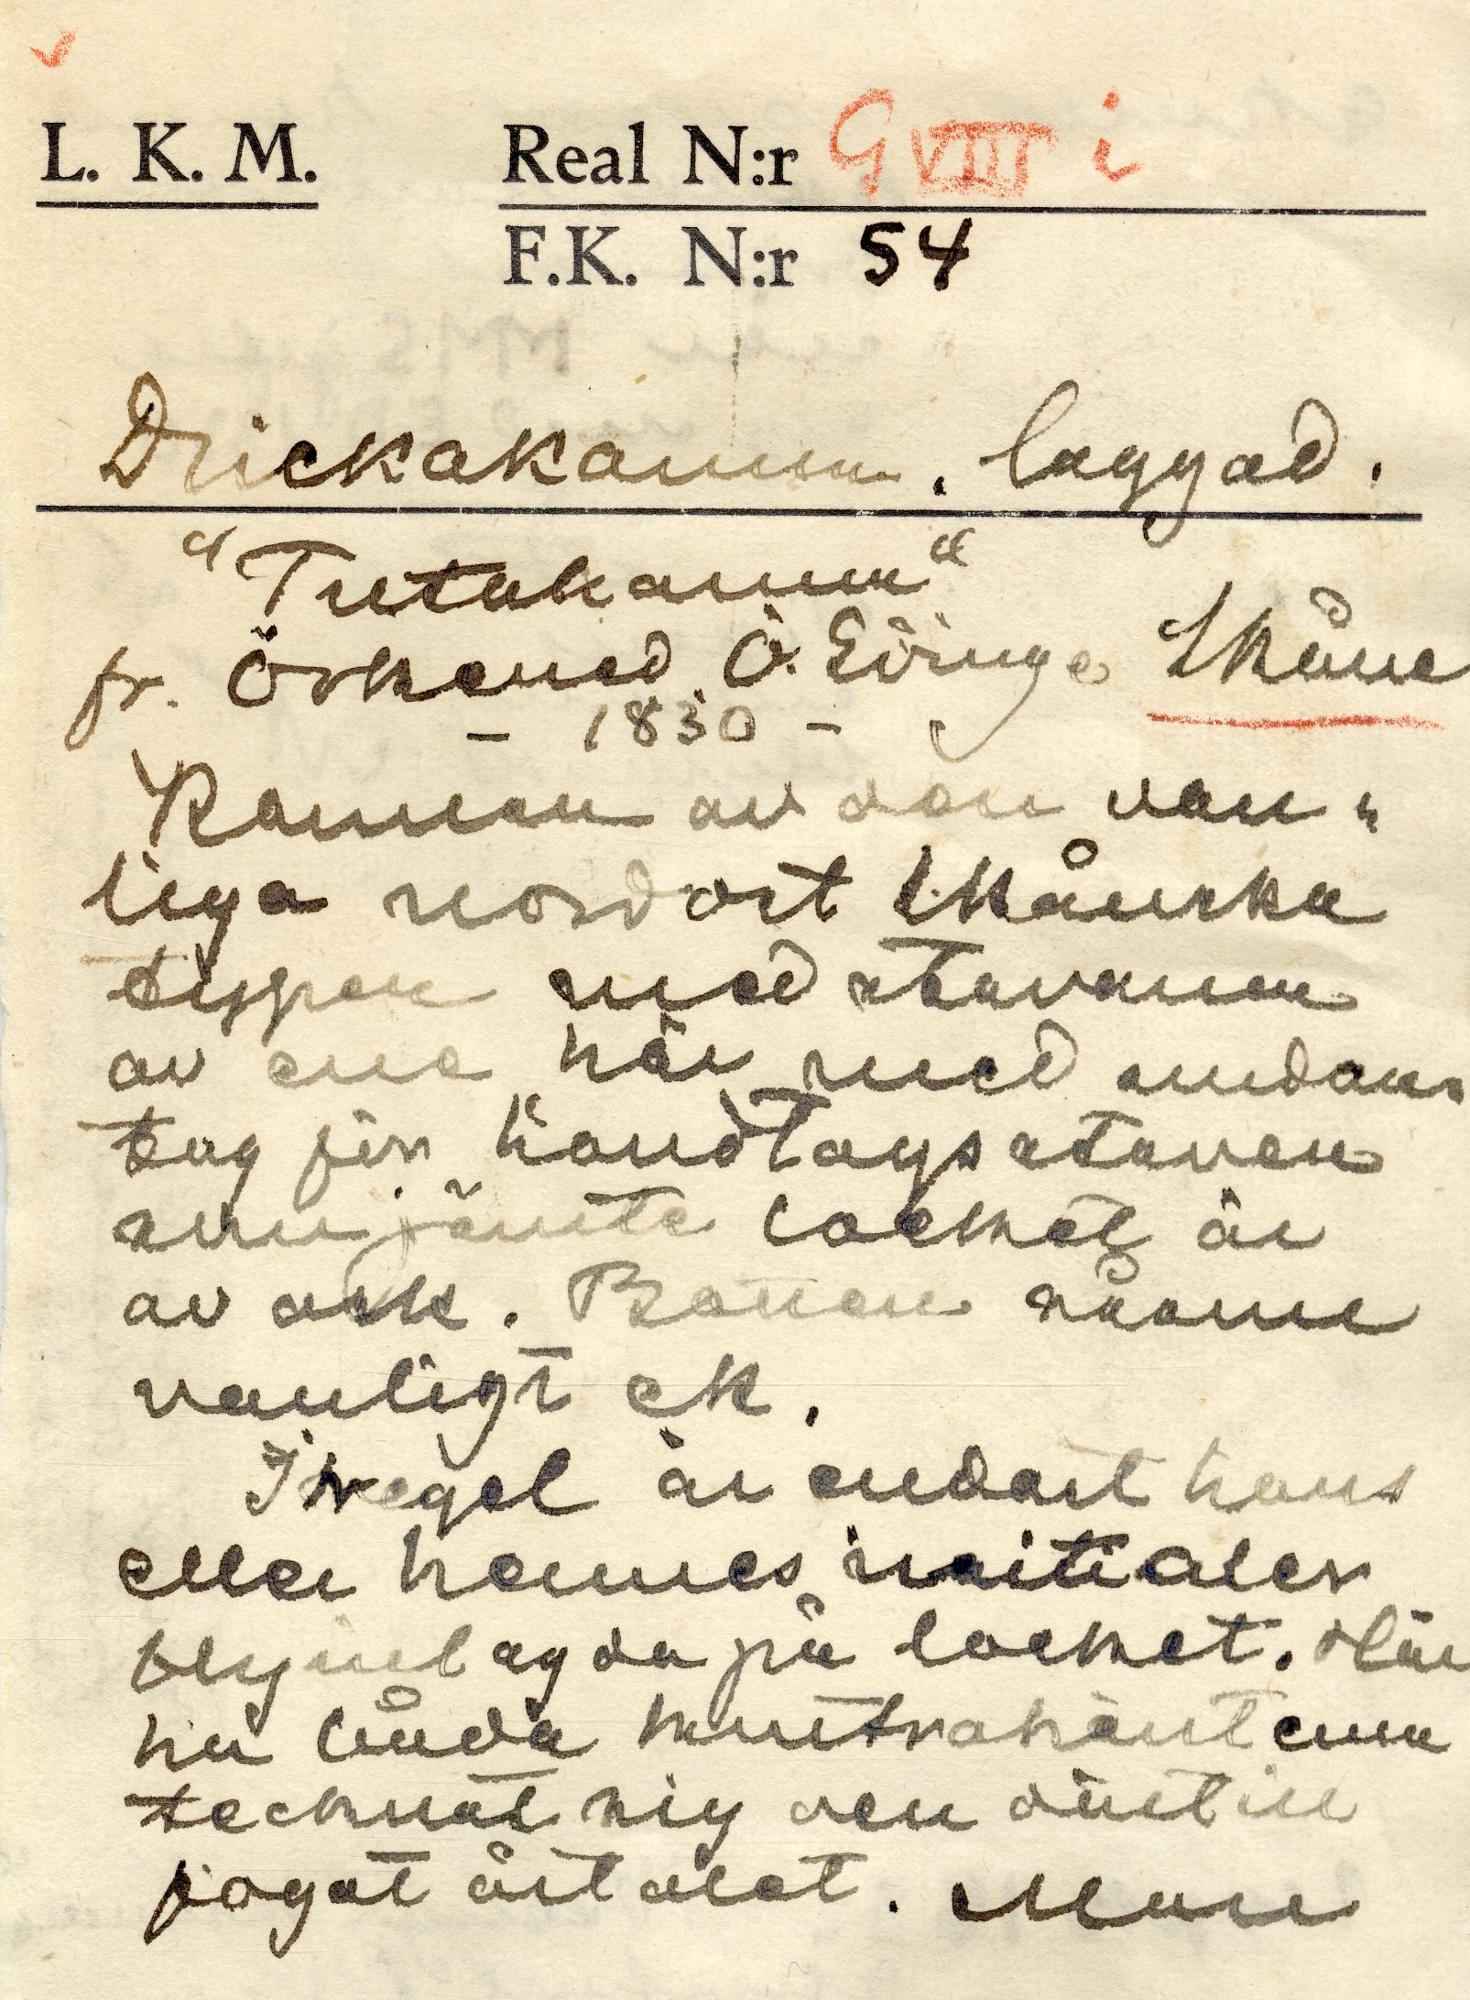 L. K. M. Real N:r G VIII i
F.K. N:r 54
Drickakanna. laggad.
"Tutakanna"
fr. Örkened Ö. Göinge Skåne
- 1830 -
Kannan av den van"
liga nordost skånska
typen med stavarna
av ene här med undan
tag för handtagsstaven
som jämte locket är
av ask. Botten såsom
vanligt ek.
I regel är endast hans
eller hennes initialer
blyinlagda på locket. Här
ha båda kontrahenterna
tecknat sig och därtill
fogat årtalet. Man